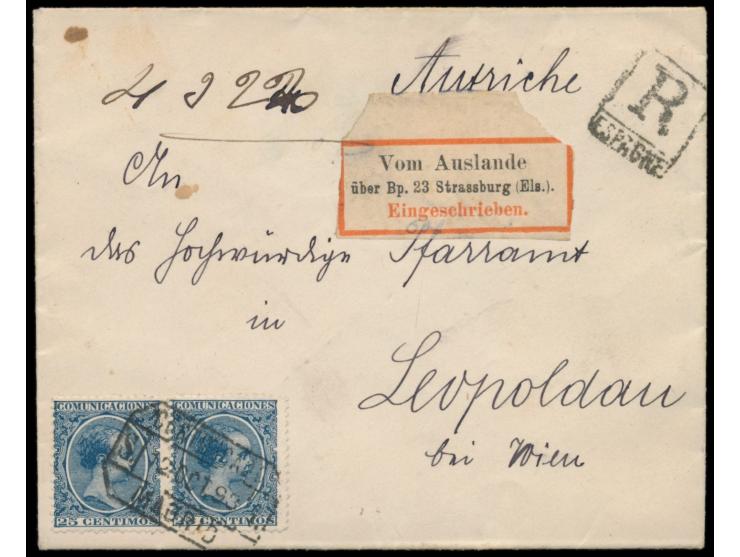 Autriche
R
ESPAGNE
Vom Auslande
über Bp. 23 Strassburg (Els.).
Eingeschrieben.
An
das Hochwürdige Pfarramt
in
Leopoldau
bei Wien
COMUNICACIONES COMUNICACIONES
25 CENTIMOS 25 CENTIMOS
MADRID